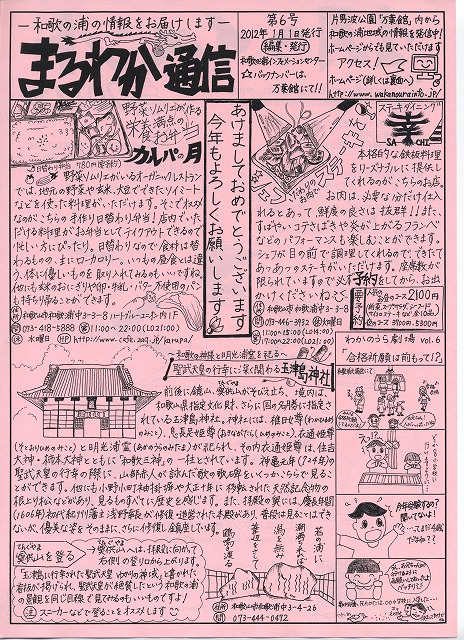 ―和歌の浦の情報をお届けします―
まるわか通信
第6号
2012年1月1日発行
編集・発行
和歌の浦インフォメーションセンター
☆バックナンバーは、
万葉館にて!!
片男波公園「万葉館」内から
和歌の浦地域の情報を発信中!
ホームページからも見ていただけます
アクセス!
ホームページ(詳しくは裏面へ)
http://www.wakanourainfo.jp/
野菜ソムリエが作る
栄養満点の
お弁当
カルパの月
日替わり弁当 780円(要予約)
野菜ソムリエがいるオーガニックレストラン
では、地元の野菜や玄米、大豆でできたソイミート
などを使った料理が、いただけます。そこでオススメ
なのがこちらの手作り日替わり弁当!店内でいた
だける料理が、お弁当としてテイクアウトできるので
忙しい方にぴったり。日替わりなので食材は替
わるものの、まにローカロリー。いつもの昼食とは違
う、体に優しいものを取り入れてみるのもいいですね。
他にも玄米のおにぎりや卵・牛乳・バター不使用のパン
も持ち帰ることができます。
和歌山市和歌浦東3-3-8 ハートグレースコート内1F
073-418-5888
11:00～22:00(LO21:00)
水曜日
HP http://www.cafe.zaq.jp/karupa/
あけましておめでとうございます
今年もよろしくお願いします
ステーキダイニング
幸
SACHI
本格的な鉄板料理
をリーズナブルに提供し
てくれるのがこちらのお店。
お肉は、必要な分だけ仕入
れるとあって鮮度の良さは抜群!!また、
すばやいコテさばきや炎が上がるフランベ
などのパフォーマンスも楽しむことができます。
シェフが目の前で調理してくれるので、できたて
あつあつのステーキがいただけます。座席数が
限られていますので必ず予約をしてから、お出
かけくださいね。
和歌山市和歌浦南3-10-8
073-446-3932
火曜日
11:00～15:00(LO14:00)
17:00～22:00(LO21:00)
要予約
2100円
3900円、5300円
～和歌の神様と明光浦霊を祀る～
聖武天皇の行幸に深く関わる玉津島神社
前後に鏡山、奠供山がそびえ立ち、境内は、
和歌山県指定文化財、さらに国の名勝に指定さ
れている玉津島神社。神社には、稚日女尊(わかひるめ
のみこと)、息長足姫尊(おきながたらしひめのみこと)、衣通姫尊
(そとおりひめのみこと)と明光浦霊(あかのうらのみたま)が祀られ、その内衣通姫尊は、住吉
大神・柿本大神とともに「和歌三神」の一柱とされています。神亀元年(724年)の
聖武天皇の行幸の際に、山部赤人が詠んだ歌の歌碑をいくつかこちらで見るこ
とができます。他にも小野小町袖掛塀や大正十年に移築された天然記念物の
根上り松などがあり、見るものすべてに歴史を感じます。また、拝殿の奥には、慶長年間
(1606年)初代紀州藩主浅野幸長が修復・造営された本殿があり、普段は見ることはでき
ないが、優美な姿をそのままに、さらに修復し鎮座しています。
奠供山を登る
奠供山へは、拝殿に向かって
右側の登り口から上がれます。
「玉津島に行幸された聖武天皇ゆかりの神域」と書かれた
看板が掲げられ、聖武天皇が絶賛したという和歌の浦
の景観を同じ目線で見てみるのもいいものですよ!
注 スニーカーなどで登ることをオススメします
若の浦に
潮満ち来れば
潟を無み
葦辺をさして
鶴鳴き渡る
和歌山市和歌浦中3-4-26
073-444-0472
わかのうら劇場 vol.6
「合格祈願は前もって!?」